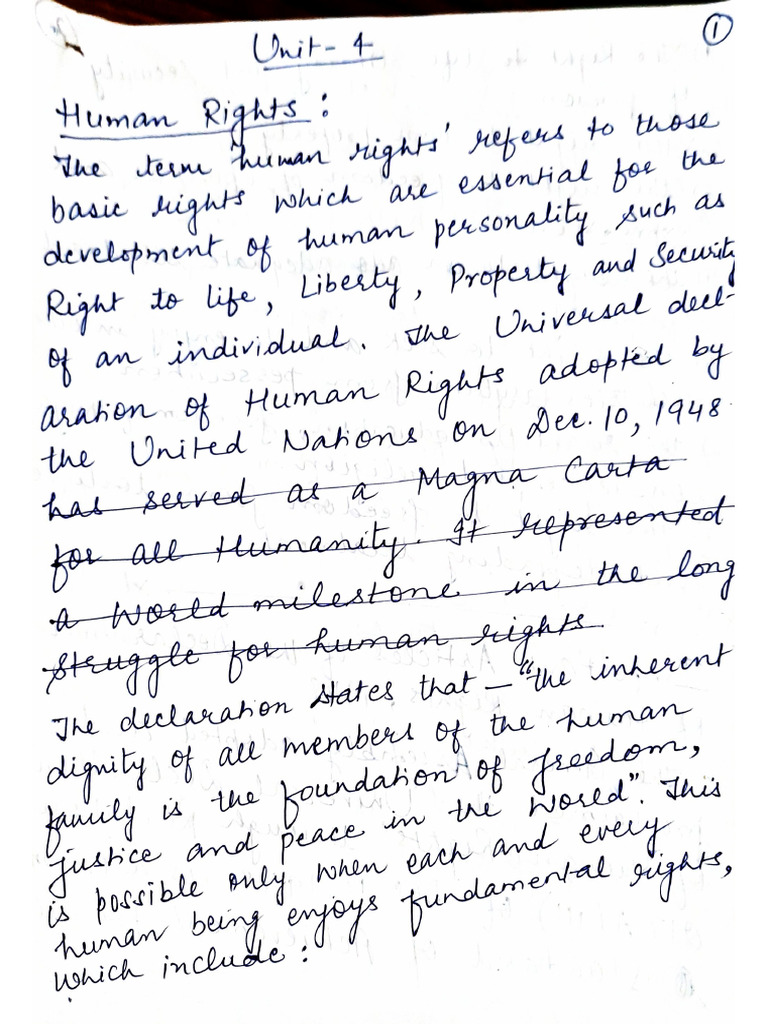 Unit - 4
1
Human Rights :
The term 'human rights' refers to those
basic rights which are essential for the
development of human personality such as
Right to life, Liberty, Property and Security
of an individual. The Universal decl-
aration of Human Rights adopted by
the United Nations on Dec. 10, 1948
has served as a Magna Carta
for all Humanity. It represented
a world milestone in the long
struggle for human rights.
The declaration states that – "the inherent
dignity of all members of the human
family is the foundation of freedom,
justice and peace in the world". This
is possible only when each and every
human being enjoys fundamental rights,
which include :